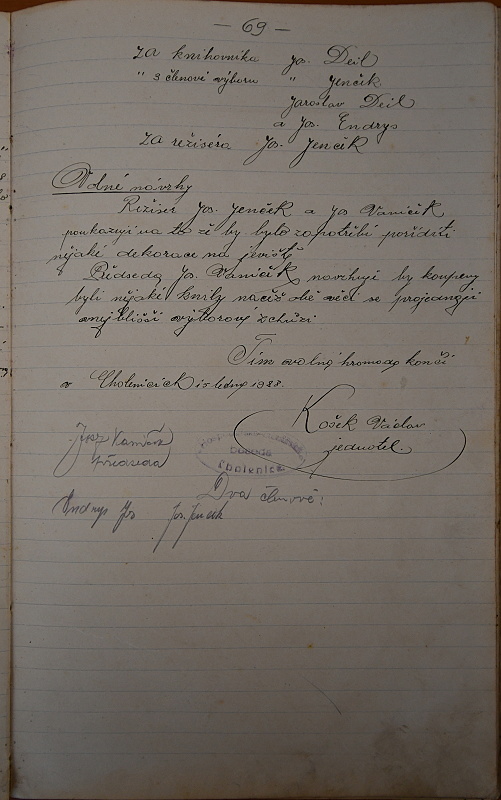 — 69 —
Za knihovníka Jos. Deil
" 3 členové výboru " Jenčík
Jaroslav Deil
a Jos. Endrys
Za režiséra Jos. Jenčík
Volné návrhy
Režisér Jos. Jenček a Jos Vaníček
poukazují na to že by bylo zapotřebí poříditi
nějaké dekorace na jeviště
Předseda Jos. Vaníček navrhuje by koupeny
byli nějaké knihy načež obě věci se projednají
v nejbližší výborové schůzi
Tím valná hromada končí
v Cholenicích ledna
Košek Václav
jednatel.
Josef Vaníček
předseda
Beseda
Cholenice
Dva členové:
Endrys Jos Jos. Jenčík